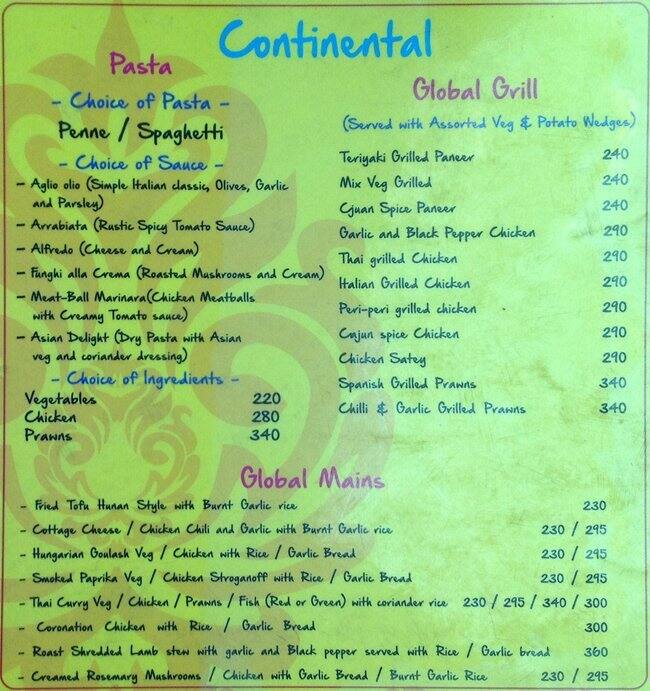 Continental
Pasta
- Choice of Pasta -
Penne / Spaghetti
- Choice of Sauce -
- Aglio olio (Simple Italian classic, Olives, Garlic
and Parsley)
- Arrabiata (Rustic Spicy Tomato Sauce)
- Alfredo (Cheese and Cream)
- Funghi alla Crema (Roasted Mushrooms and Cream)
- Meat-Ball Marinara(Chicken Meatballs
with Creamy Tomato sauce)
- Asian Delight (Dry Pasta with Asian
veg and coriander dressing)
- Choice of Ingredients -
Vegetables 220
Chicken 280
Prawns 340
Global Grill
(Served with Assorted Veg & Potato Wedges)
Teriyaki Grilled Paneer 240
Mix Veg Grilled 240
Cjuan Spice Paneer 240
Garlic and Black Pepper Chicken 290
Thai grilled Chicken 290
Italian Grilled Chicken 290
Peri-peri grilled chicken 290
Cajun spice Chicken 290
Chicken Satey 290
Spanish Grilled Prawns 340
Chilli & Garlic Grilled Prawns 340
Global Mains
- Fried Tofu Hunan Style with Burnt Garlic rice 230
- Cottage Cheese / Chicken Chili and Garlic with Burnt Garlic rice 230 / 295
- Hungarian Goulash Veg / Chicken with Rice / Garlic Bread 230 / 295
- Smoked Paprika Veg / Chicken Stroganoff with Rice / Garlic Bread 230 / 295
- Thai Curry Veg / Chicken / Prawns / Fish (Red or Green) with coriander rice 230 / 295 / 340 / 300
- Coronation Chicken with Rice / Garlic Bread 300
- Roast Shredded Lamb stew with garlic and Black pepper served with Rice / Garlic bread 360
- Creamed Rosemary Mushrooms / Chicken with Garlic Bread / Burnt Garlic Rice 230 / 295